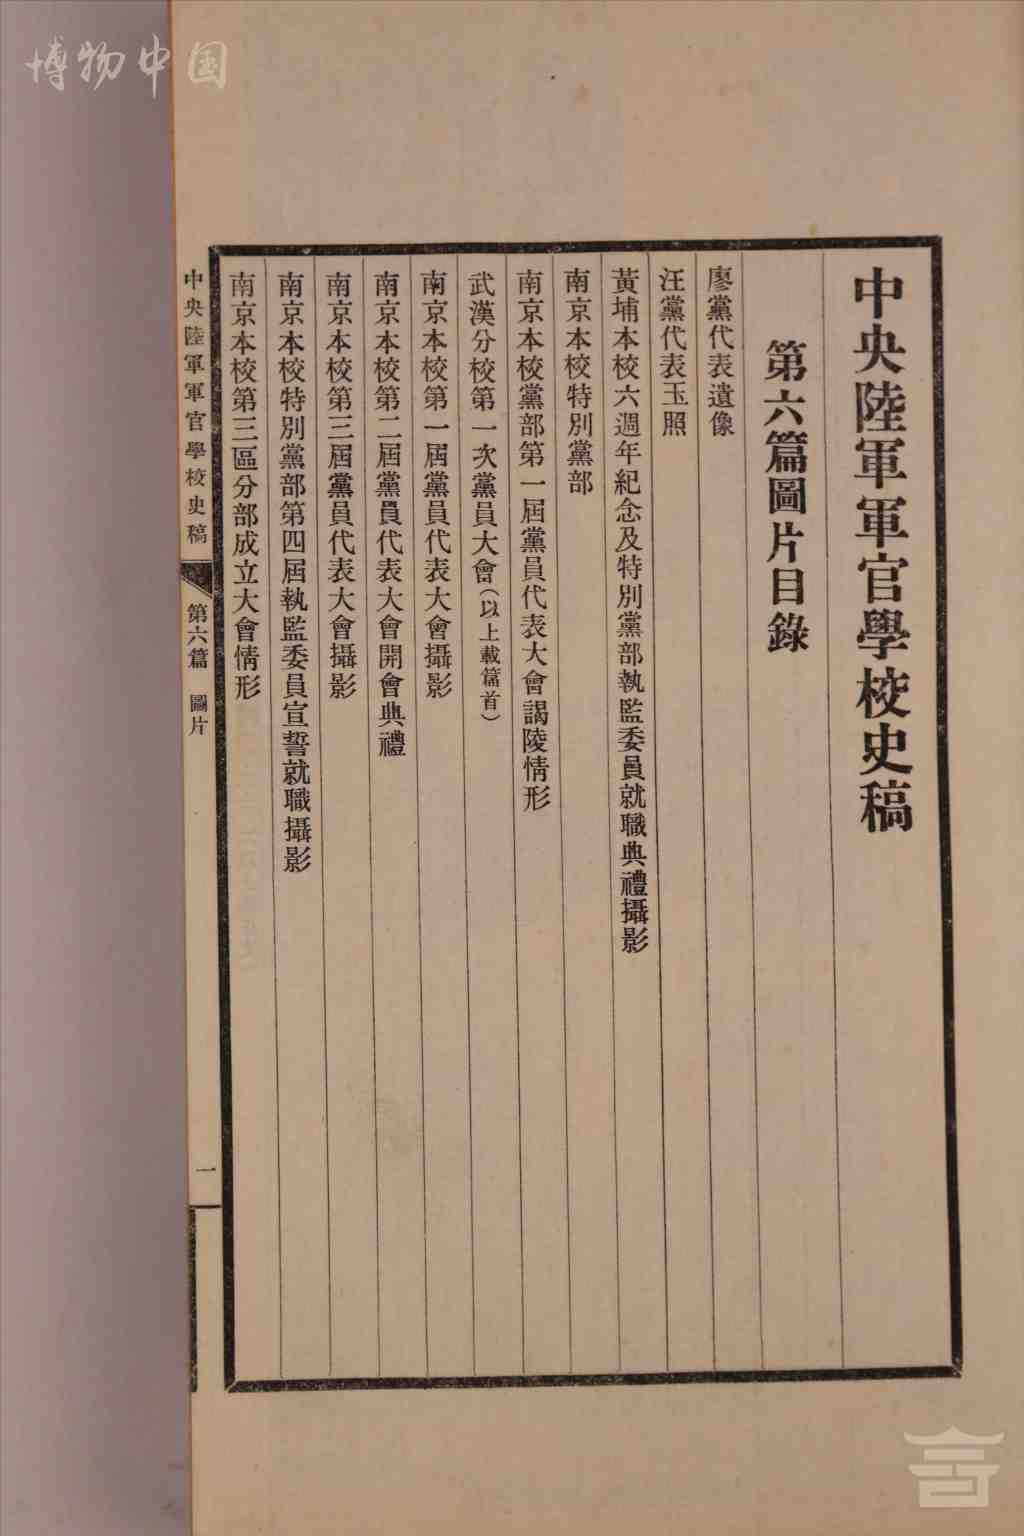 博物中国
中央陸軍軍官學校史稿
第六篇圖片目錄
廖黨代表遺像
汪黨代表玉照
黃埔本校六週年紀念及特別黨部執監委員就職典禮攝影
南京本校特別黨部
南京本校黨部第一屆黨員代表大會謁陵情形
武漢分校第一次黨員大會(以上載篇首)
南京本校第一屆黨員代表大會攝影
南京本校第二屆黨員代表大會開會典禮
南京本校第三屆黨員代表大會攝影
南京本校特別黨部第四屆執監委員宣誓就職攝影
南京本校第三區分部成立大會情形
中央陸軍軍官學校史稿 第六篇 圖片 一